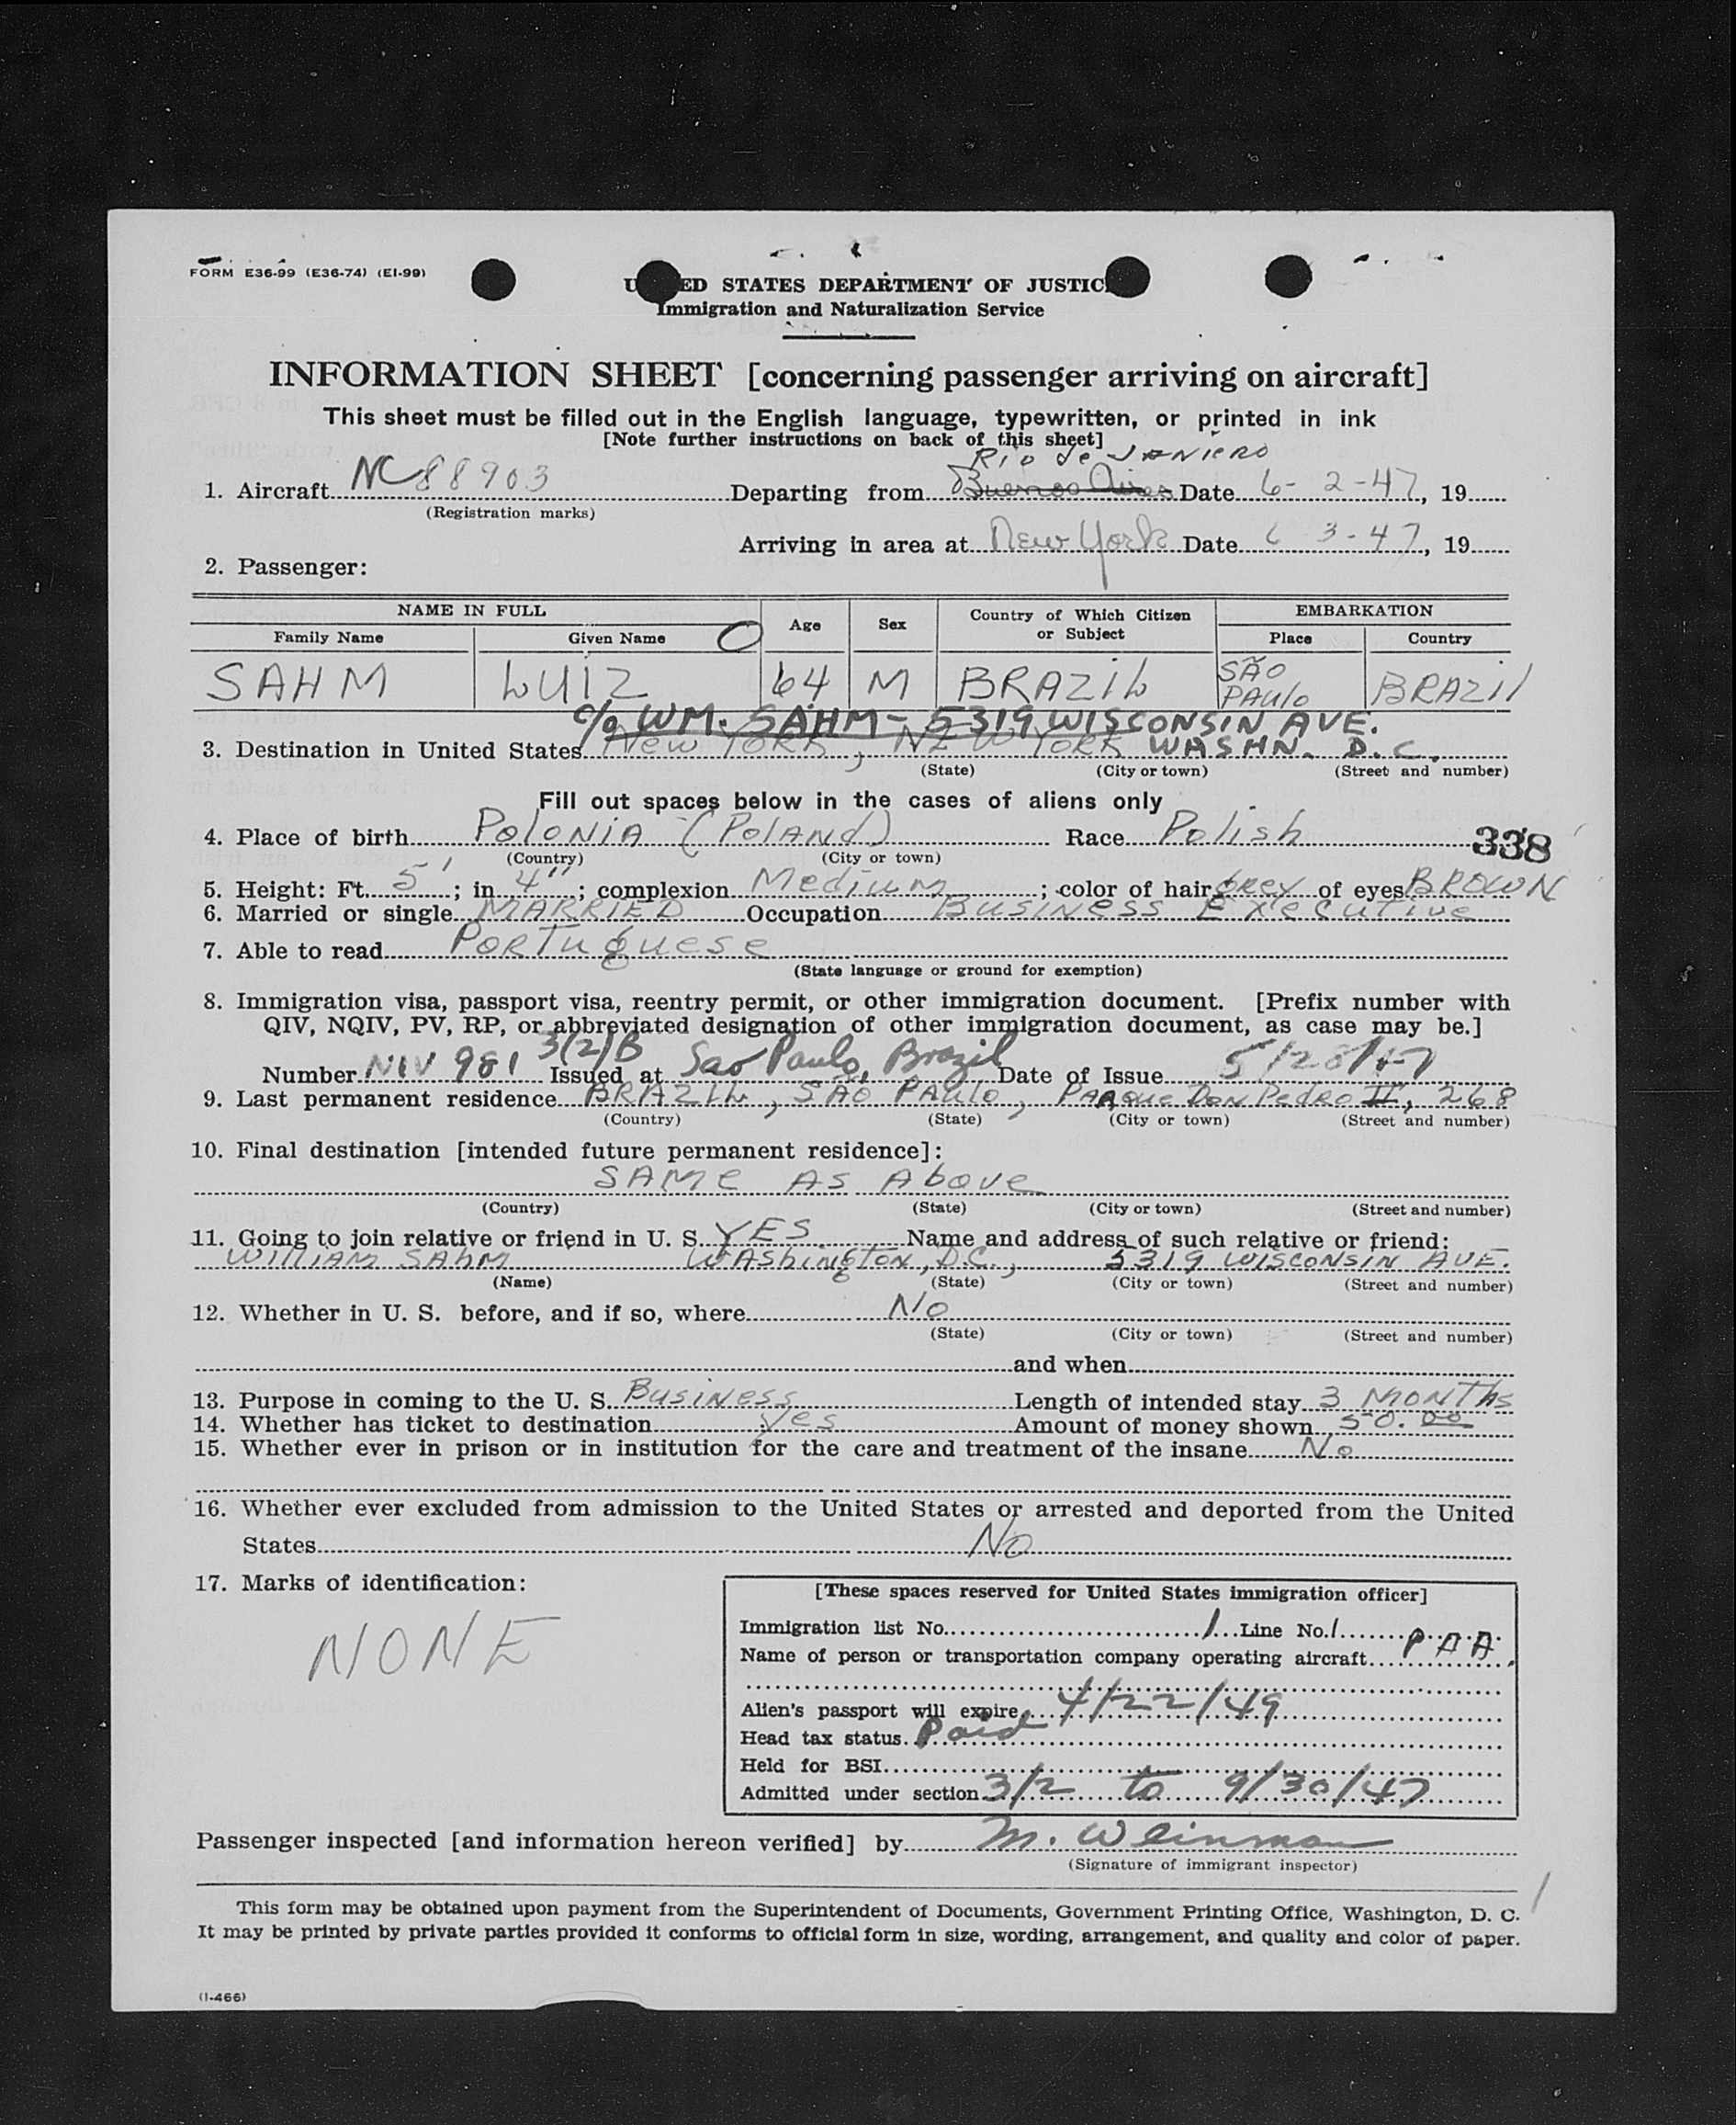 FORM E36-99 (E36-74) (EI-99)
U ED STATES DEPARTMENT OF JUSTIC
Immigration and Naturalization Service
INFORMATION SHEET [concerning passenger arriving on aircraft]
This sheet must be filled out in the English language, typewritten, or printed in ink
[Note further instructions on back of this sheet]
Rio de JANIERO
1. Aircraft NC88903 Departing from Buenos Aires Date 6-2-47, 19
(Registration marks)
Arriving in area at New York Date 6 3-47, 19
2. Passenger:
NAME IN FULL Age Sex Country of Which Citizen or Subject EMBARKATION
Family Name Given Name Place Country
SAHM LUIZ 64 M BRAZIL SÃO PAULO BRAZIL
c/o WM. SAHM - 5319 WISCONSIN AVE.
3. Destination in United States New YORK, NEW YORK WASHN. D.C.
(State) (City or town) (Street and number)
Fill out spaces below in the cases of aliens only
4. Place of birth POLONIA (POLAND) Race Polish 338
(Country) (City or town)
5. Height: Ft. 5'; in. 4"; complexion Medium; color of hair GREY of eyes BROWN
6. Married or single MARRIED Occupation BUSINESS EXECUTIVE
7. Able to read PORTUGUESE
(State language or ground for exemption)
8. Immigration visa, passport visa, reentry permit, or other immigration document. [Prefix number with
QIV, NQIV, PV, RP, or abbreviated designation of other immigration document, as case may be.]
Number NIV 981 3(2)B Issued at Sao Paulo, Brazil Date of Issue 5/28/47
9. Last permanent residence BRAZIL, SÃO PAULO, PARQUE Don Pedro II, 268
(Country) (State) (City or town) (Street and number)
10. Final destination [intended future permanent residence]:
SAME AS Above
(Country) (State) (City or town) (Street and number)
11. Going to join relative or friend in U. S. YES Name and address of such relative or friend:
WILLIAM SAHM WAShingTON, D.C., 5319 WISCONSIN AVE.
(Name) (State) (City or town) (Street and number)
12. Whether in U. S. before, and if so, where No
(State) (City or town) (Street and number)
and when
13. Purpose in coming to the U. S. Business Length of intended stay 3 MONTHS
14. Whether has ticket to destination Yes Amount of money shown 50.00
15. Whether ever in prison or in institution for the care and treatment of the insane No
16. Whether ever excluded from admission to the United States or arrested and deported from the United
States No
17. Marks of identification:
NONE
[These spaces reserved for United States immigration officer]
Immigration list No. 1 Line No. 1
Name of person or transportation company operating aircraft PAA
Alien's passport will expire 4/22/49
Head tax status Paid
Held for BSI
Admitted under section 3/2 to 9/30/47
Passenger inspected [and information hereon verified] by M. Weinman
(Signature of immigrant inspector)
This form may be obtained upon payment from the Superintendent of Documents, Government Printing Office, Washington, D. C.
It may be printed by private parties provided it conforms to official form in size, wording, arrangement, and quality and color of paper.
(I-466)